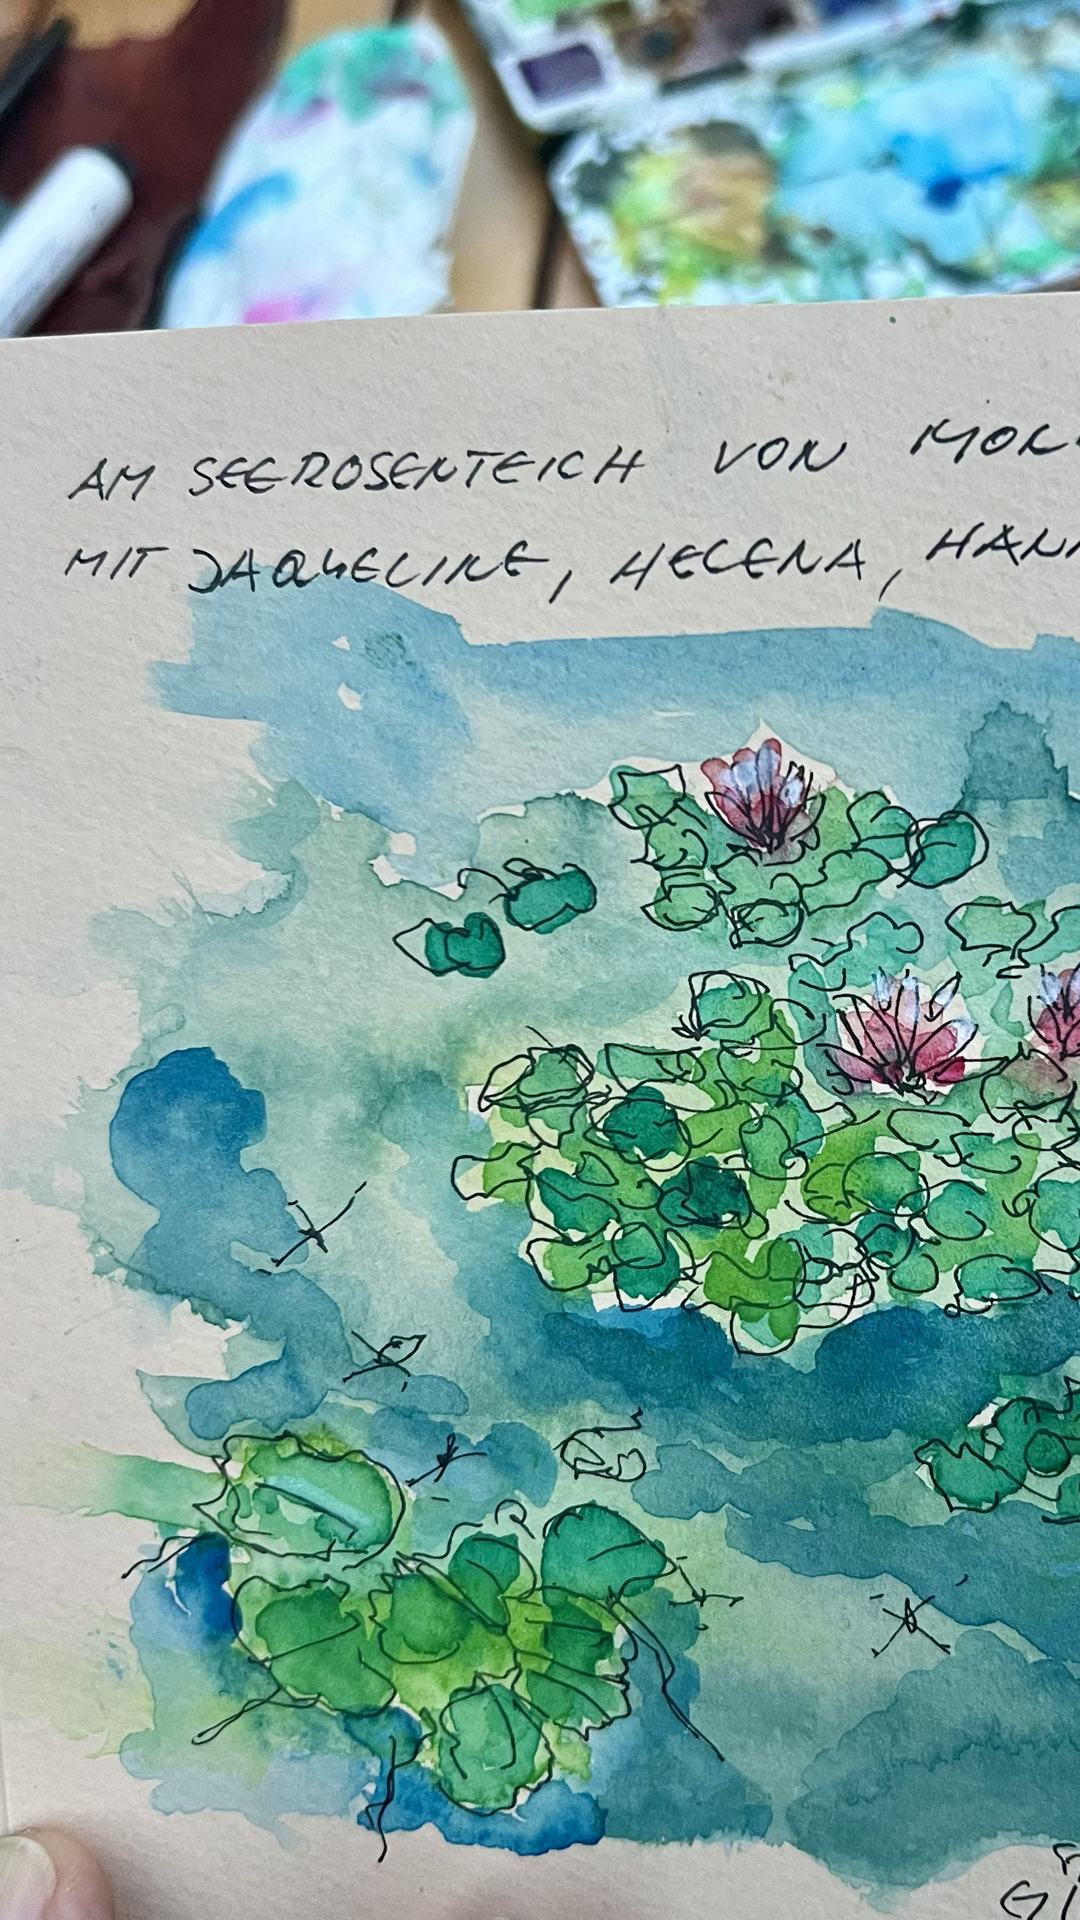 AM SEEROSENTEICH VON
MIT JAQUELINE, HELENA,